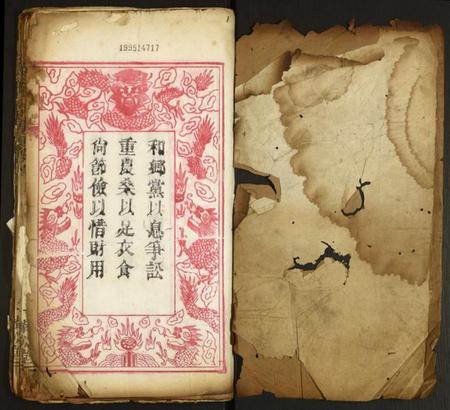 199514717
和鄉黨以息爭訟
重農桑以足衣食
尙節儉以惜財用